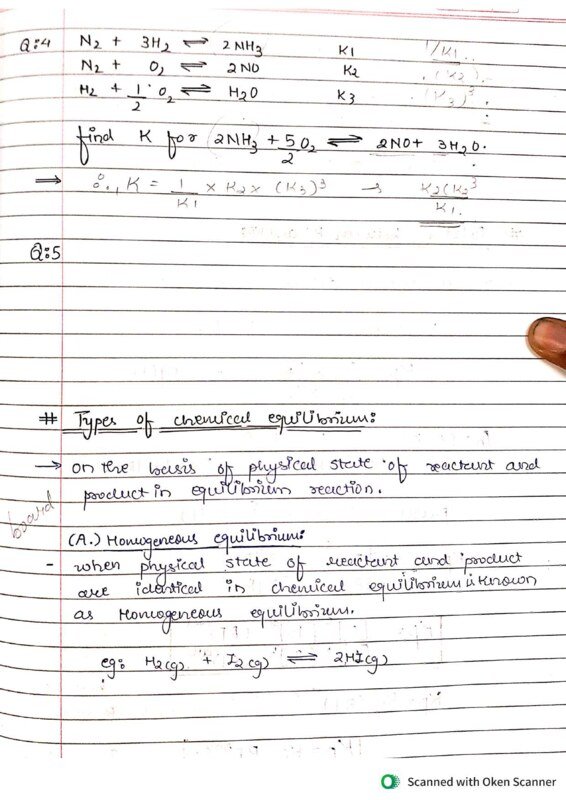 Q:4 N2 + 3H2 ⇌ 2NH3 K1 1/K1
N2 + O2 ⇌ 2NO K2 (K2)
H2 + 1/2 O2 ⇌ H2O K3 (K3)³
find K for 2NH3 + 5/2 O2 ⇌ 2NO + 3H2O.
⇒ ∴, K = 1/K1 × K2 × (K3)³ → K2(K3³/K1
Q:5
# Types of chemical equilibrium:
→ on the basis of physical state of reactant and
product in equilibrium reaction.
board
(A.) Homogeneous equilibrium:
- when physical state of reactant and product
are identical in chemical equilibrium is known
as Homogeneous equilibrium.
eg: H2(g) + I2(g) ⇌ 2HI(g)
Scanned with Oken Scanner